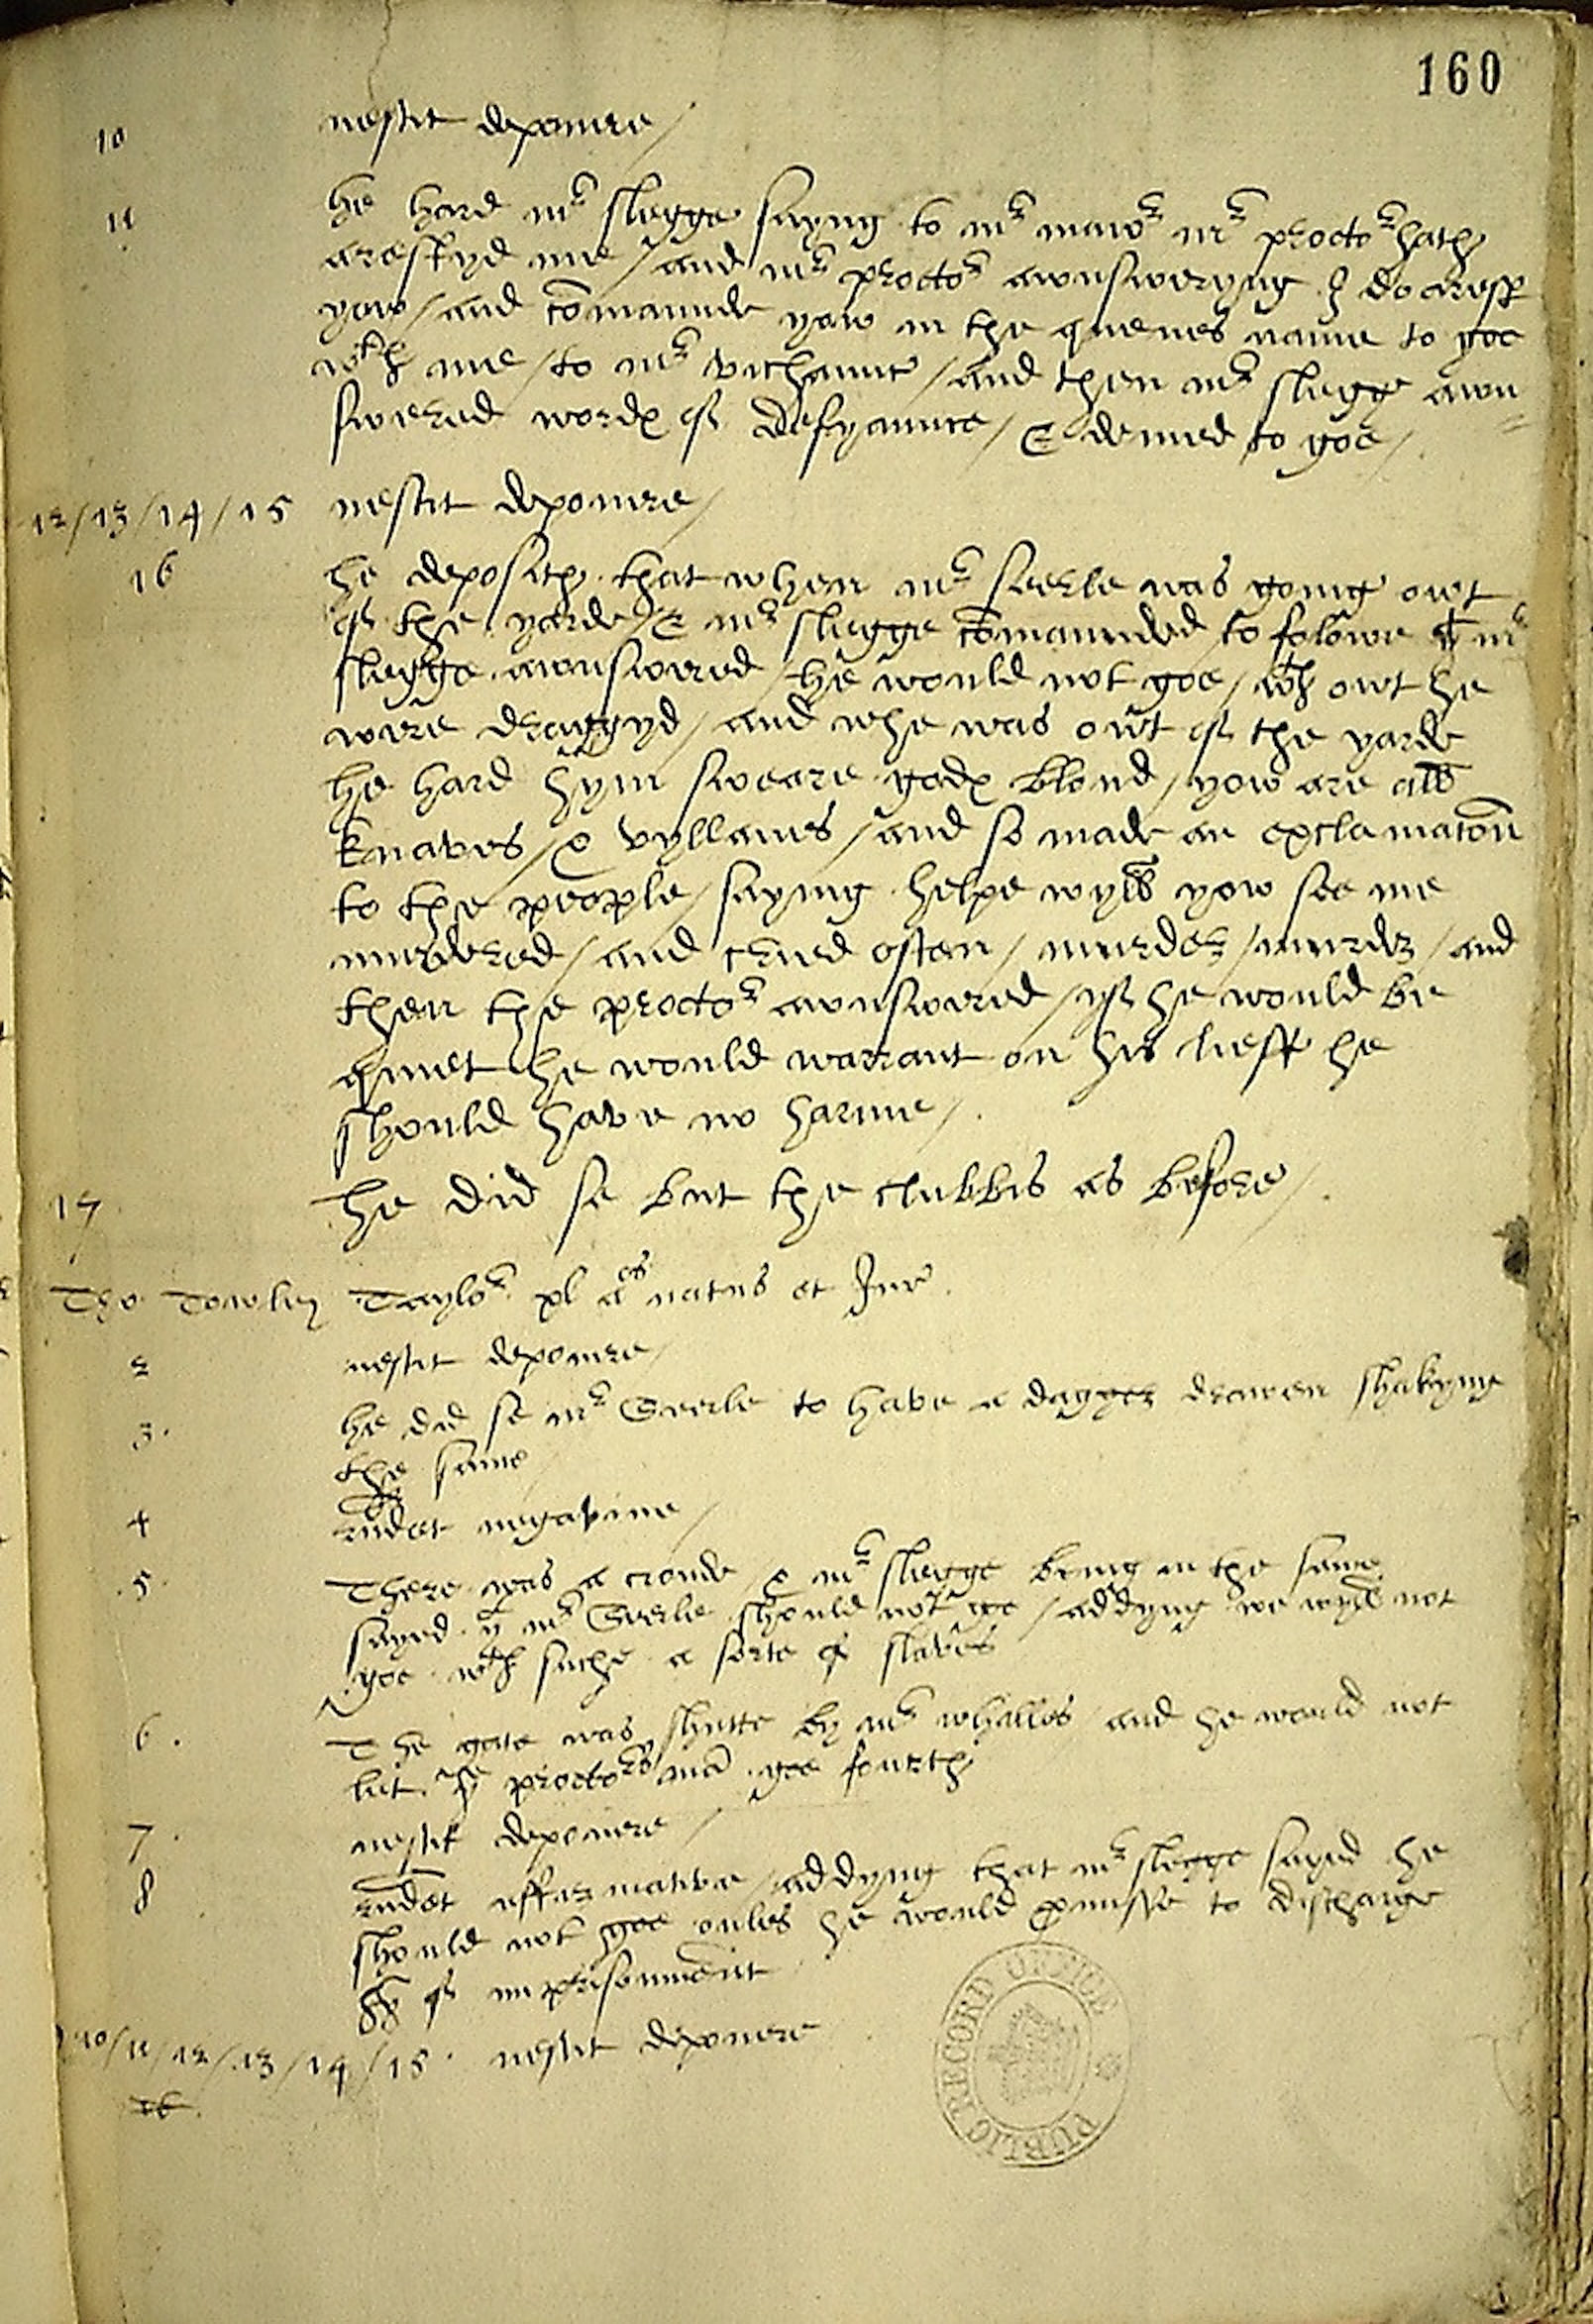 160
10 nescit deponere /
11 he hard mr slegge sayng to mr maior mr proctor hath
arestyd me / and mr proctor awnsweryng I do arest
yow / and comaunde yow in the quenes name to goe
wth me / to mr vichaunc / and then mr slegge awn
swered words of defyaunce / & denied to goe /
12 / 13 / 14 / 15 nescit deponere /
16 he deposith that when mr seerle was going owt
of the yarde / & mr slegge comaunded to folowe mr
slegge awnswered / he would not goe / wthowt he
were draggyd / and whe was owt of the yarde
he hard hym sweare gods bloud / yow are all
knaves / & vyllanes / and so made an exclamacon
to the people / saying helpe wyll yow see me
murdered / and cried often / murder / murder / and
then the proctor awnswered / yf he would be
quiet he would warrant on his lieff he
should have no harme /
17 he did se but the clubbis as before /
Tho Towley Taylor pl annos natus et Jur
2 nescit deponere /
3 he did se mr Seerle to have a dagger drawen shakyng
the same /
4 rndet negative /
5 There was a croude / & mr slegge being in the same
sayed yt mr Seerle should not go / addyng we wyll not
goe wth suche a sorte of slaves
6 The gate was shutte by mr whalles and he would not
let ye proctors man goe fourth
7 nescit deponere /
8 rndet affermative / addyng that mr slegge sayed he
should not goe onles he would promisse to discharge
of imprisonment
10 / 11 / 12 / 13 / 14 / 15 nescit deponere
16
PUBLIC RECORD OFFICE